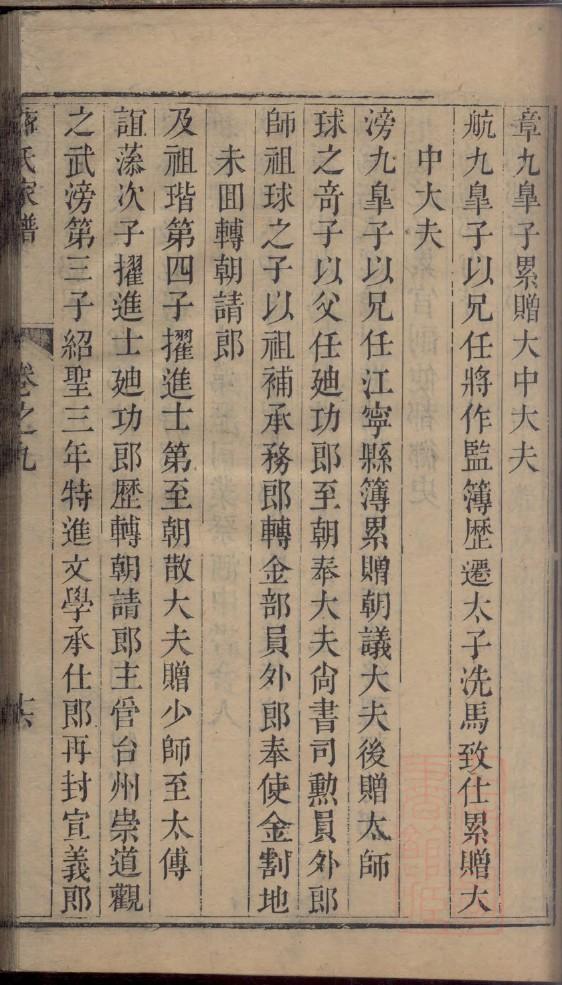 章九臯子累贈大中大夫
航九臯子以兄任將作監簿歷遷太子洗馬致仕累贈大
中大夫
滂九臯子以兄任江寧縣簿累贈朝議大夫後贈太師
球之竒子以父任廸功郎至朝奉大夫尙書司勲員外郎
師祖球之子以祖補承務郎轉金部員外郎奉使金割地
未囬轉朝請郎
及祖瑎第四子擢進士第至朝散大夫贈少師至太傅
誼蓀次子擢進士廸功郎歷轉朝請郎主管台州崇道觀
之武滂第三子紹聖三年特進文學承仕郎再封宣義郎
氏家譜
卷之九
十六